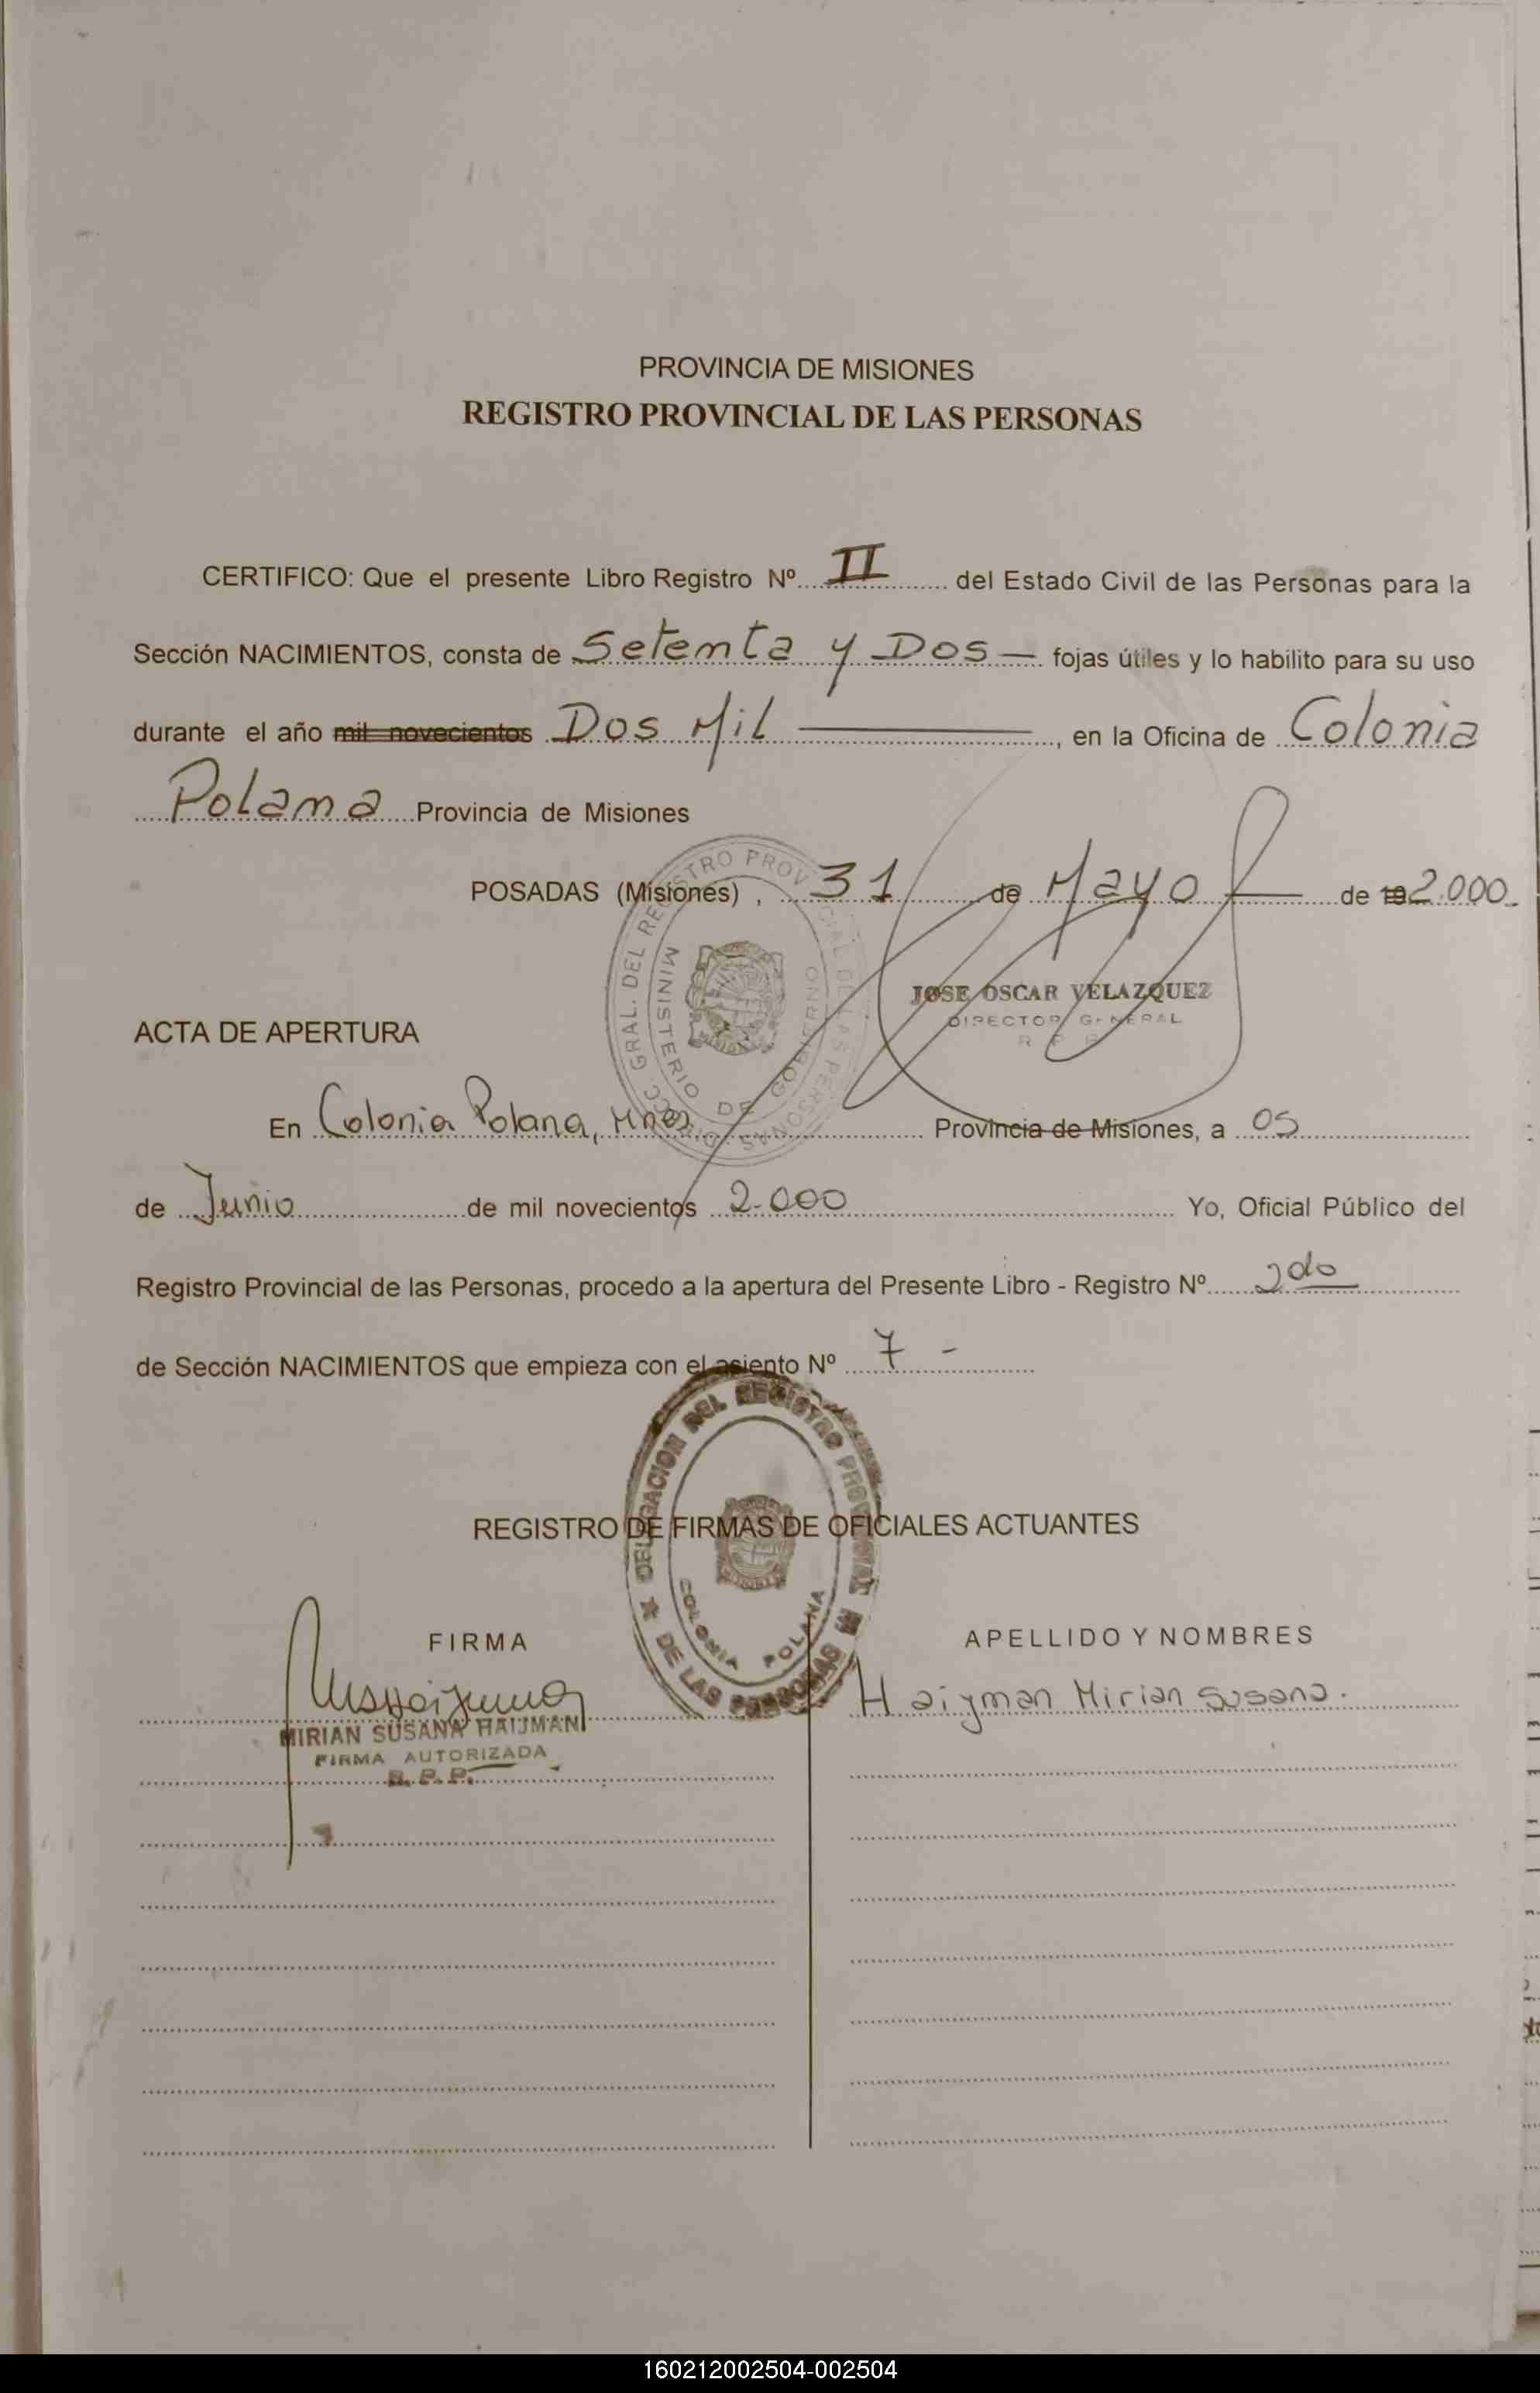 PROVINCIA DE MISIONES
REGISTRO PROVINCIAL DE LAS PERSONAS
CERTIFICO: Que el presente Libro Registro Nº II del Estado Civil de las Personas para la
Sección NACIMIENTOS, consta de Setenta y Dos — fojas útiles y lo habilito para su uso
durante el año mil novecientos Dos Mil ——, en la Oficina de Colonia
Polana Provincia de Misiones
POSADAS (Misiones), 31 de Mayo — de 19 2.000
JOSE OSCAR VELAZQUEZ
DIRECTOR GENERAL
R P P
DIRECC. GRAL. DEL REGISTRO PROVINCIAL DE LAS PERSONAS
MINISTERIO DE GOBIERNO
ACTA DE APERTURA
En Colonia Polana, Mnes Provincia de Misiones, a 05
de Junio de mil novecientos 2.000 Yo, Oficial Público del
Registro Provincial de las Personas, procedo a la apertura del Presente Libro - Registro Nº 2do
de Sección NACIMIENTOS que empieza con el asiento Nº 7 -
DELEGACION DEL REGISTRO PROVINCIAL DE LAS PERSONAS
COLONIA POLANA
REGISTRO DE FIRMAS DE OFICIALES ACTUANTES
FIRMA APELLIDO Y NOMBRES
Haijman Mirian Susana.
MIRIAN SUSANA HAIJMAN
FIRMA AUTORIZADA
R. P. P.
160212002504-002504